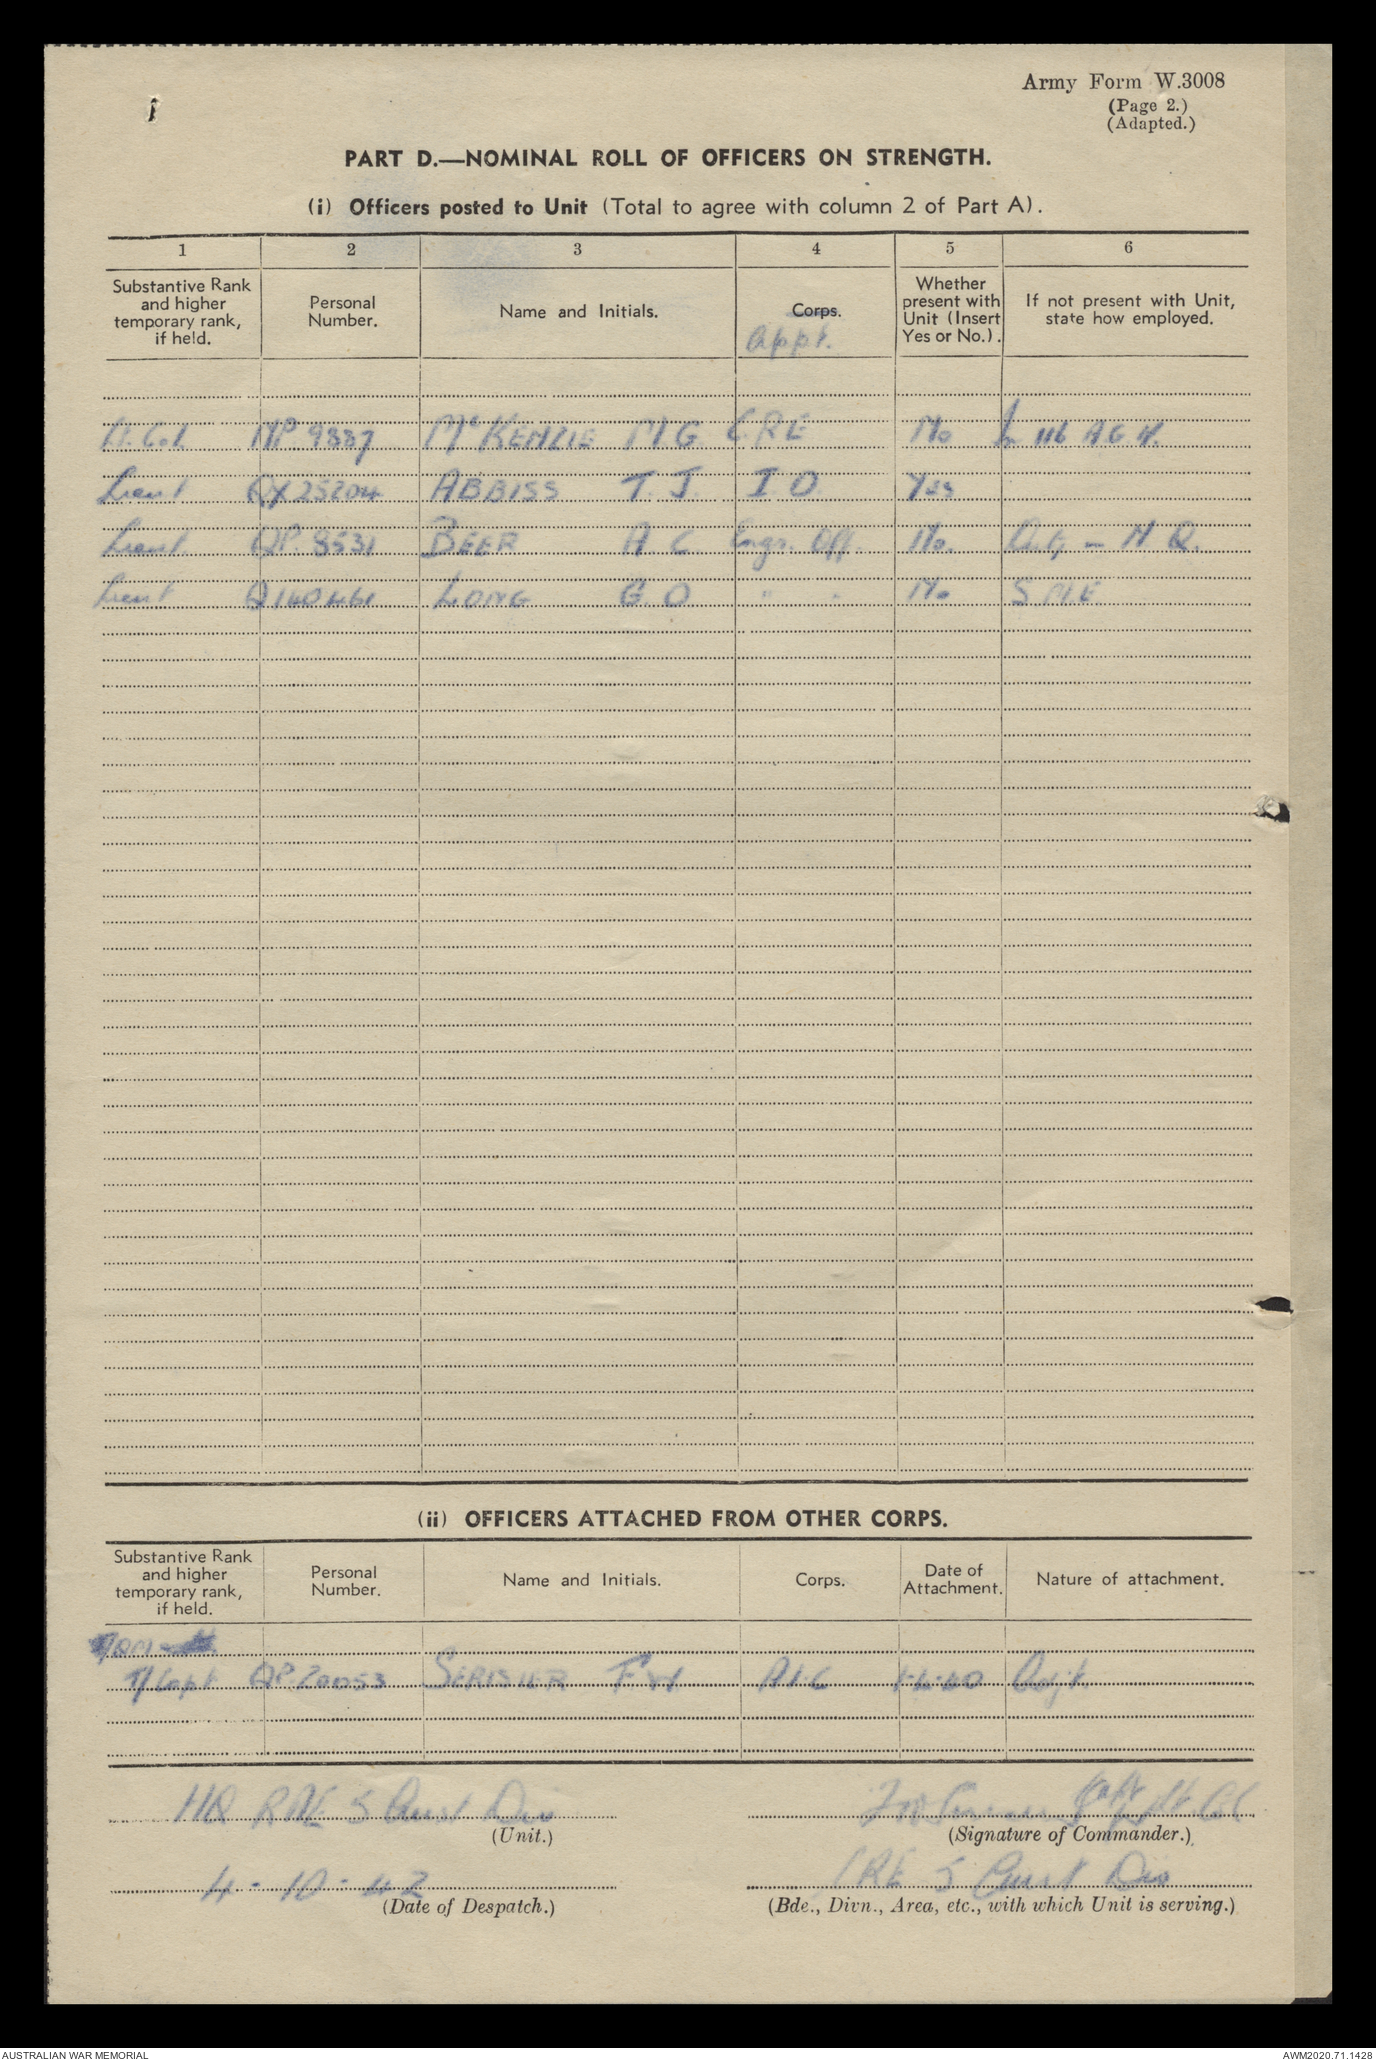 Army Form W.3008
(Page 2.)
(Adapted.)
PART D.—NOMINAL ROLL OF OFFICERS ON STRENGTH.
(i) Officers posted to Unit (Total to agree with column 2 of Part A).
1 2 3 4 5 6
Substantive Rank and higher temporary rank, if held. Personal Number. Name and Initials. Corps. Appt. Whether present with Unit (Insert Yes or No.). If not present with Unit, state how employed.
Lt. Col NP. 9337 McKENZIE M.G. C.R.E No In 116 A.G.H.
Lieut QX 25204 ABBISS T. J. I. O. Yes
Lieut QP. 8531 BEER A. C. Engr. Off. No. - H Q.
Lieut Q140461 LONG G. O " " No S.M.E.
(ii) OFFICERS ATTACHED FROM OTHER CORPS.
Substantive Rank and higher temporary rank, if held. Personal Number. Name and Initials. Corps. Date of Attachment. Nature of attachment.
T/Capt QP.20053 SERISIER F. Adjt.
HQ RAE 5 Aust Div
(Unit.)
Capt Lt Col
(Signature of Commander.)
4 - 10 - 42
(Date of Despatch.)
CRE 5 Aust Div
(Bde., Divn., Area, etc., with which Unit is serving.)
AUSTRALIAN WAR MEMORIAL AWM2020.71.1428